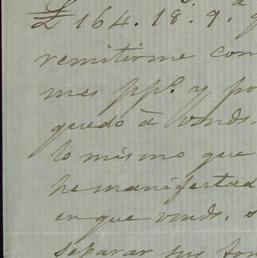 £ 164. 18. 9.
remitirme con
mes pp.º y po
quedo à vmds.
lo mismo que
he manifestad
en que vmds. s
separar sus fon